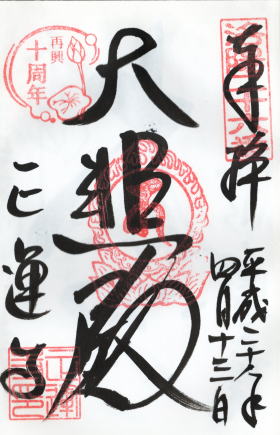 奉拝
平成二十六年
四月十三日
大悲殿
再興
十周年
正運寺